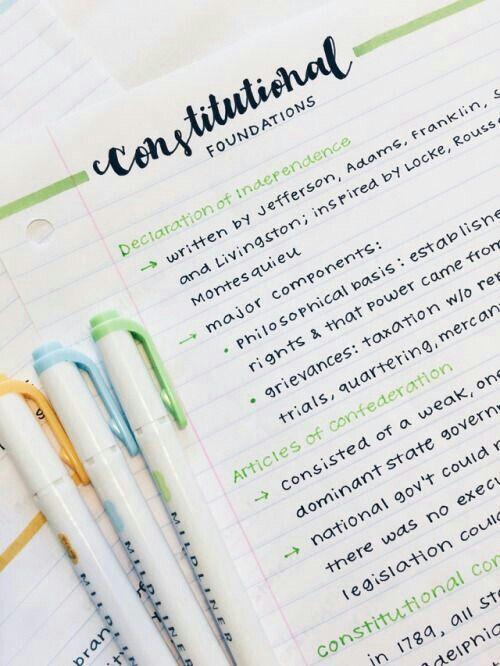 Constitutional
FOUNDATIONS
Declaration of Independence
→ written by Jefferson, Adams, Franklin, S
and Livingston; inspired by Locke, Rouss
Montesquieu
→ major components:
• Philosophical basis: establishe
rights & that power came from
• grievances: taxation w/o rep
trials, quartering, mercan
Articles of Confederation
→ consisted of a weak, one
dominant state governm
→ national gov't could n
there was no execu
legislation could
Constitutional Con
in 1789, all sta
delphia
brand
MILDLINER
MILDLINER
MILDLINER